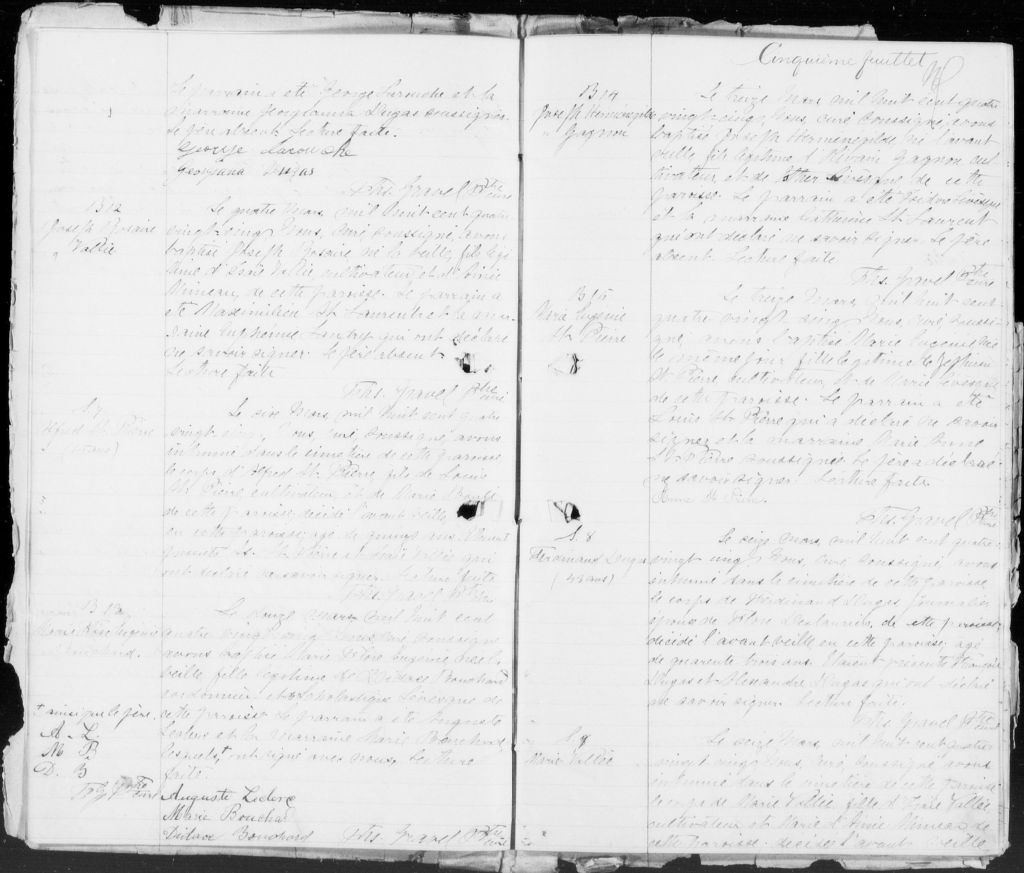 Le parrain a été George Larouche et la
marraine Georgianna Dugas soussignés.
Le père absent. Lecture faite.
George Larouche
Georgiana Dugas
Ths. Gravel Ptre curé
B 12
Joseph Rosaire
Vallée
Le quatre Mars, mil huit cent quatre
vingt cinq Nous, curé soussigné, avons
baptisé Joseph Rosaire né la veille, fils légi
time d' Isaïe Vallée cultivateur et d' Aimée
Mineau, de cette paroisse. Le parrain a
été Maximilien St. Laurent et la mar
raine Euphémie qui ont déclaré
ne savoir signer. Le père absent
Lecture faite
Ths. Gravel Ptre curé
S. 7
Alfred St. Pierre
(15 ans)
Le Mars, mil huit cent quatre
vingt cinq, Nous, curé, soussigné, avons
inhumé dans le cimetière de cette paroisse
le corps d' Alfred St. Pierre, fils de Louis
St. Pierre, cultivateur, et de Marie
de cette paroisse décédé l'avant veille
en cette paroisse, agé de quinze ans. Etaient
présents Ls. St. Pierre et Isaïe Vallée qui
ont déclaré ne savoir signer. Lecture faite
Ths. Gravel Ptre curé
B 13
Marie Rose Eugénie
Bouchard.
Le douze Mars mil huit cent
quatre vingt cinq Nous, curé soussigné
avons baptisé Marie Eugénie née la
veille, fille légitime de Bouchard
cordonnier et de Scholastique Lévesque de
cette paroisse. Le parrain a été Auguste
Leclerc et la marraine Marie Bouchard
lesquels ont signé avec nous. Lecture
faite.
+ ainsi que le père.
A. L.
M B
D. B
Ptre curé
Auguste Leclerc
Marie Bouchard
Bouchard Ths. Gravel Ptre curé
Cinquième feuillet
B 14
Joseph Herménégilde
Gagnon
Le treize Mars mil huit cent quatre
vingt cinq, Nous, curé soussigné, avons
baptisé Joseph Herménégilde né l'avant
veille, fils légitime d' Gagnon cul
tivateur et de Esther Lévesque de cette
paroisse. Le parrain a été Isidore Lévesque
et la marraine Catherine St. Laurent
qui ont déclaré ne savoir signer. Le père
absent. Lecture faite
Ths. Gravel Ptre curé
B 15
Marie Eugénie
St. Pierre
Le treize Mars, mil huit cent
quatre vingt cinq Nous, curé, soussi
gné, avons baptisé Marie Eugénie née
le même jour fille légitime de
St. Pierre, cultivateur, et de Marie Lévesque
de cette paroisse. Le parrain a été
Louis St. Pierre qui a déclaré ne savoir
signer et la marraine Marie Anne
St. Pierre soussignée. Le père a déclaré
ne savoir signer. Lecture faite
Anne St. Pierre
Ths. Gravel Ptre curé
S. 8
Ferdinand Dugas
(43 ans)
Le seize Mars, mil huit cent quatre
vingt cinq, Nous, curé, soussigné, avons
inhumé dans le cimetière de cette paroisse
le corps de Ferdinand Dugas journalier
époux de Flore Deslauriers, de cette paroisse,
décédé l'avant veille en cette paroisse, agé
de quarente trois ans. Etaient présents François
Dugas et Alexandre Dugas qui ont déclaré
ne savoir signer. Lecture faite.
Ths. Gravel Ptre curé
S. 9
Marie Vallée
Le seize Mars, mil huit cent quatre
vingt cinq Nous, curé soussigné avons
inhumé dans le cimetière de cette paroisse
le corps de Marie Vallée fille d' Isaïe Vallée
cultivateur et Marie d' Aimée Mineau de
cette paroisse. décédée l'avant veille